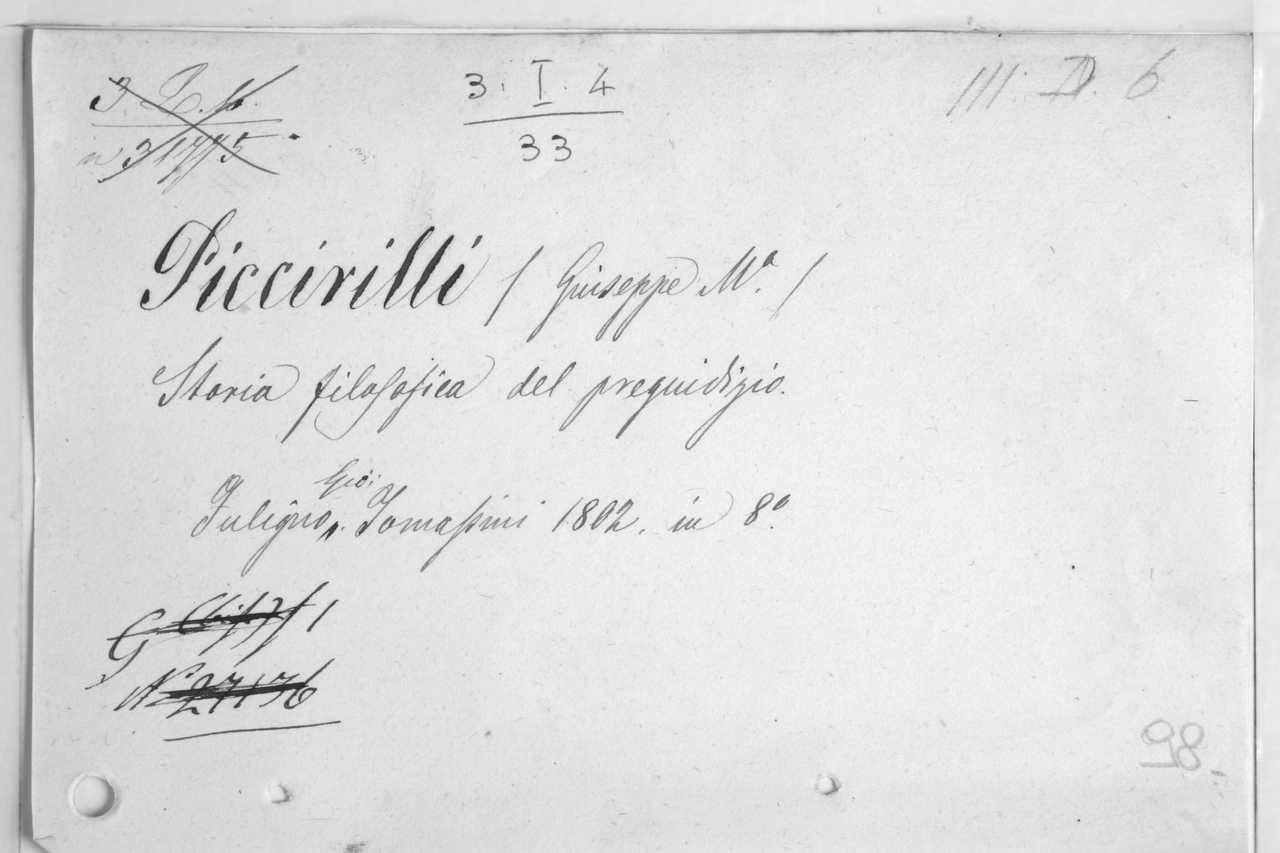 3. I. 4
33
III. D. 6
Piccirilli (Giuseppe Mª.)
Storia filosofica del preguidizio.
Fuligno, Gio: Tomassini 1802. in 8º.
98.